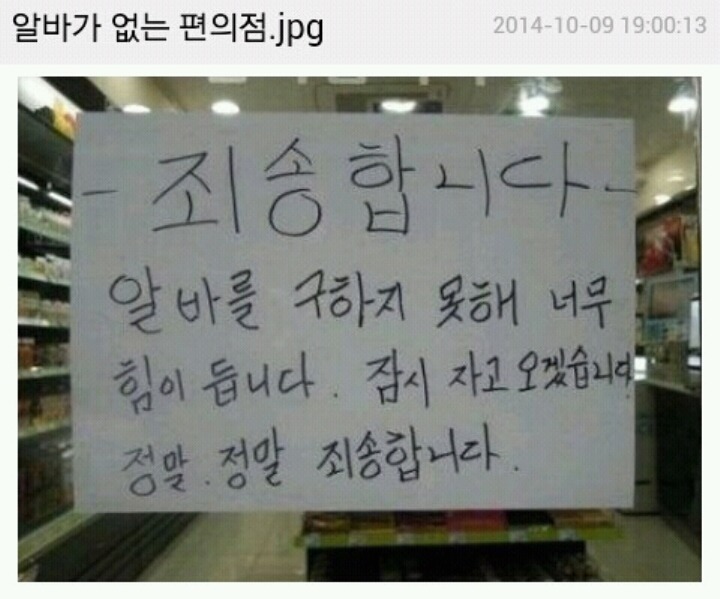 알바가 없는 편의점.jpg
2014-10-09 19:00:13
- 죄송합니다 -
알바를 구하지 못해 너무
힘이 듭니다. 잠시 자고 오겠습니다
정말. 정말 죄송합니다.